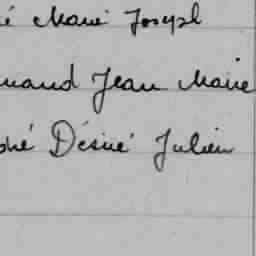 é Marie Joseph
nand Jean Marie
phé Désiré Julien